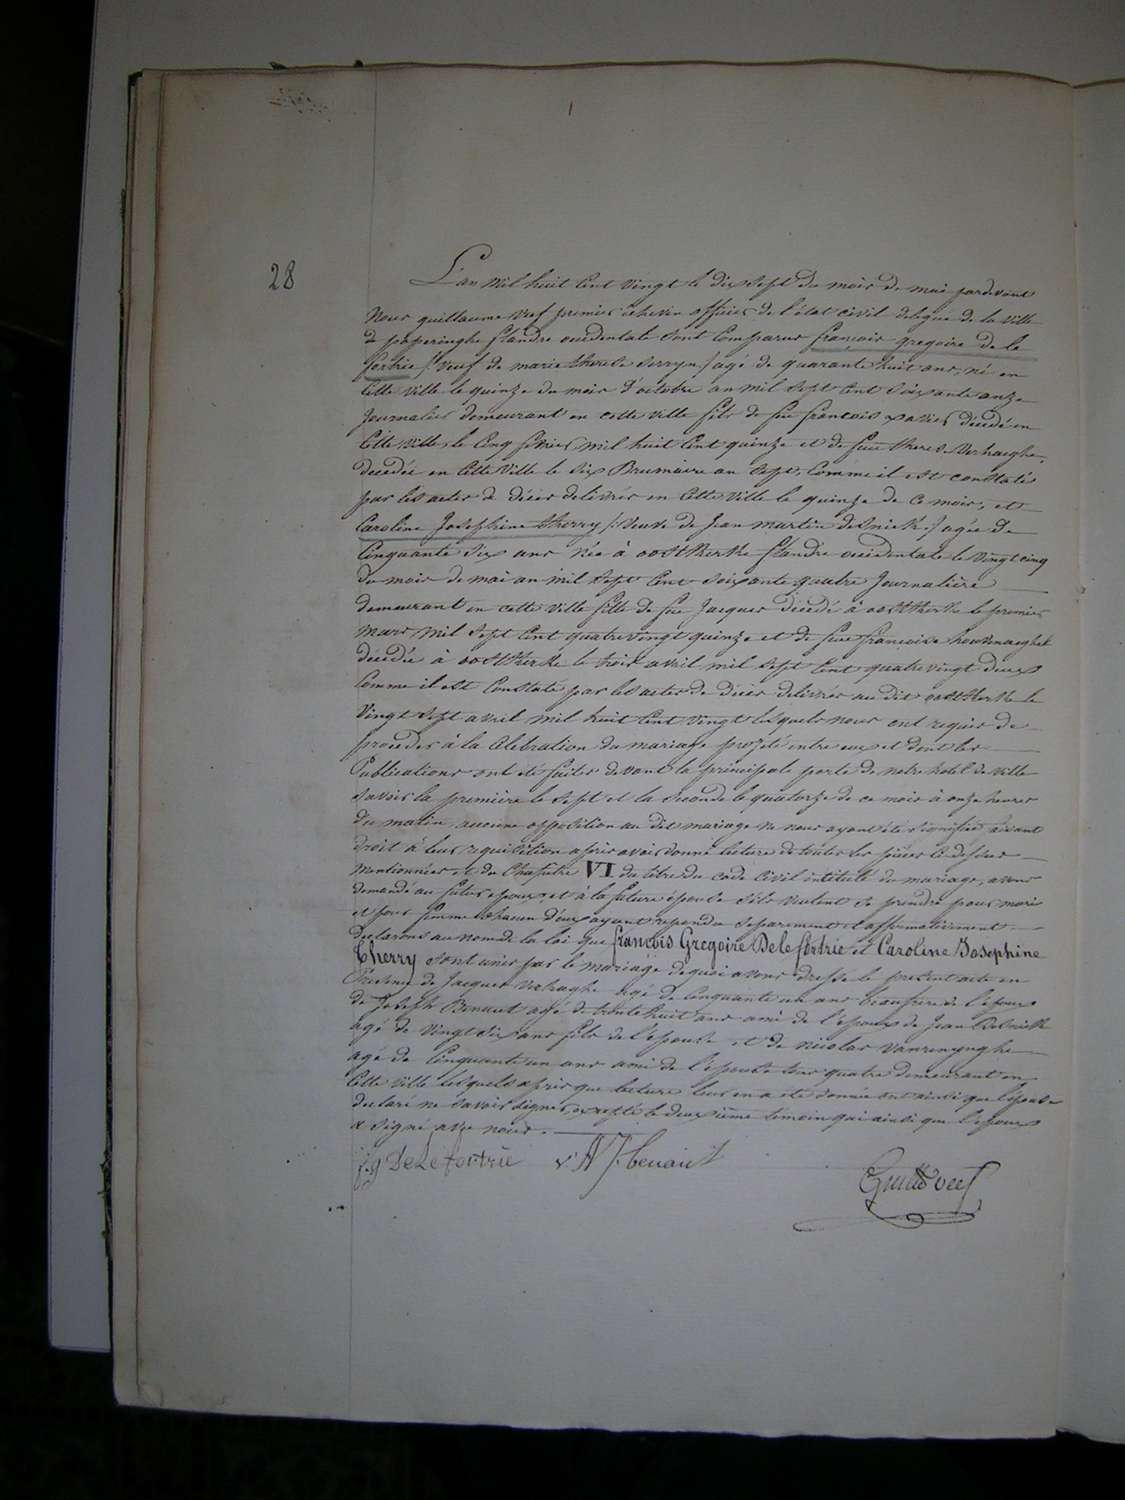 28
L'an mil huit Cent vingt le dix Sept du mois de mai pardevant
Nous guillaume Veef premier echevin officier de l'état civil delegué de la Ville
de poperinghe flandre occidentale Sont Comparus françois gregoire de le
fortrie /: Veuf de marie therese :/ agé de quarante huit ans, né en
Cette Ville le quinze du mois d'octobre an mil Sept Cent Soixante onze
Journalier demeurant en cette ville fils de feu françois xavier décédé en
Cette Ville le Cinq fevrier mil huit Cent quinze et de feue therese Verhaeghe
decedée en Cette Ville le Six Brumaire an Sept, Comme il est constaté
par les actes de décès delivrés en Cette Ville le quinze de Ce mois, et
Caroline Josephine therry /: Veuve de Jean martin deSnick :/ agée de
Cinquante Six ans née à oostkerke flandre occidentale le Vingt cinq
du mois de mai an mil Sept Cent Soixante quatre Journalière
demeurant en cette Ville fille de feu Jacques décédé à oostkerke le premier
mars mil Sept Cent quatre vingt quinze et de feue françoise
décédée à oostkerke le trois avril mil Sept Cent quatre vingt deux
Comme il est Constaté par les actes de décès delivrés au dit oostkerke le
Vingt Sept avril mil huit Cent Vingt lesquels nous ont requis de
proceder à la Celebration du mariage projeté entre eux et dont les
Publications ont été faites devant la principale porte de notre hotel de Ville
Savoir la première le Sept et la Seconde le quatorze de ce mois à onze heures
du matin, aucune opposition au dit mariage ne nous ayant été Signifiée faisant
droit à leur requisition après avoir donné lecture de toutes les pièces ci dessus
mentionnées et du Chapitre VI du titre du code Civil intitulé du mariage, avons
demandé au futur epoux et à la future épouse S'ils veulent Se prendre pour mari
et pour femme chacun d'eux ayant repondu Separement et affirmativement
declarons au nom de la loi que françois Gregoire De le fortrie et Caroline Josephine
Therry Sont unis par le mariage de quoi avons dressé le present acte en
Presence de Jacques Verhaeghe agé de Cinquante un ans beaufrere de l'epoux
de Joseph Benaut agé de trente huit ans ami de l'époux de Jean DeSnick
agé de Vingt Six ans fils de l'épouse et de Nicolas Vanrenynghe
agé de Cinquante un ans ami de l'epouse tous quatre demeurant en
Cette Ville lesquels après que lecture leur en a été donnée ont ainsi que l'épouse
declaré ne Savoir Signer, excepté le deuxième temoin qui ainsi que l'epoux
a Signé avec nous.
f.g De Le fortrie J. benaut
Guille Veef